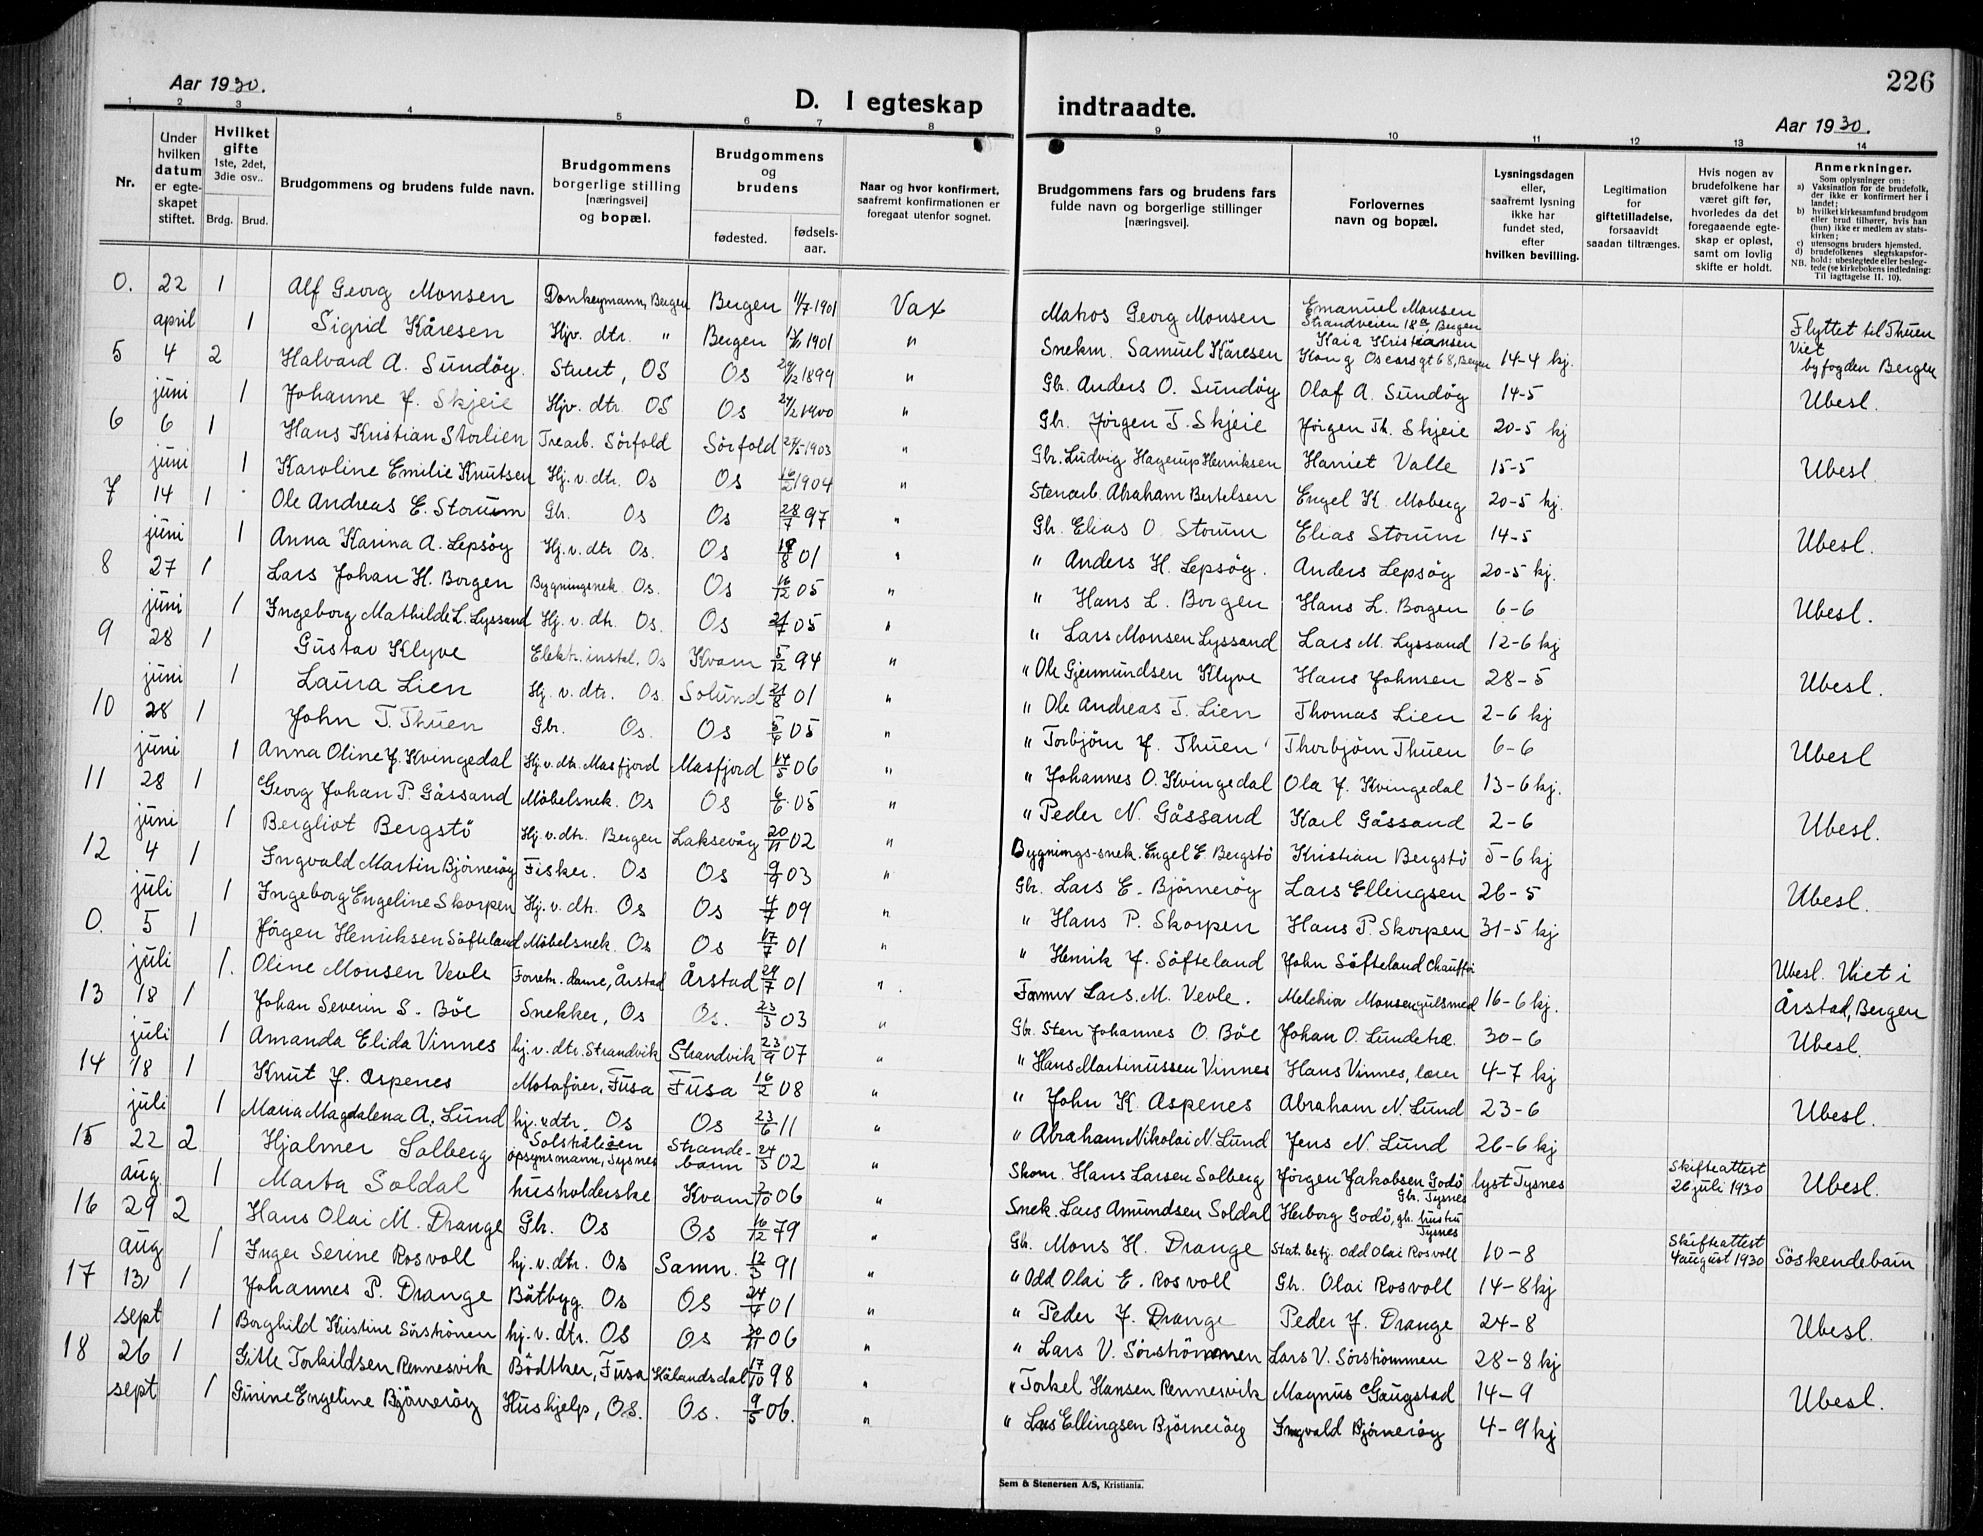 226
Aar 1930.
D. I egteskap indtraadte.
Aar 1930.
1 2 3 4 5 6 7 8 9 10 11 12 13 14
Nr.
Under hvilken datum er egteskapet stiftet.
Hvilket gifte 1ste, 2det, 3die osv..
Brdg. Brud.
Brudgommens og brudens fulde navn.
Brudgommens borgerlige stilling [næringsvei] og bopæl.
Brudgommens og brudens
fødested. fødselsaar.
Naar og hvor konfirmert, saafremt konfirmationen er foregaat utenfor sognet.
Brudgommens fars og brudens fars fulde navn og borgerlige stillinger [næringsvei].
Forlovernes navn og bopæl.
Lysningsdagen eller, saafremt lysning ikke har fundet sted, efter hvilken bevilling.
Legitimation for giftetilladelse, forsaavidt saadan tiltrænges.
Hvis nogen av brudefolkene har været gift før, hvorledes da det foregaaende egteskap er opløst, samt om lovlig skifte er holdt.
Anmerkninger.
Som oplysninger om:
a) Vaksination for de brudefolk, der ikke er konfirmert her i landet;
b) hvilket kirkesamfund brudgom eller brud tilhører, hvis han (hun) ikke er medlem av statskirken;
c) utensogns bruders hjemsted.
d) brudefolkenes slegtskapsforhold: ubeslegtede eller beslegtede (se kirkebokens indledning:
NB. Til iagttagelse II. 10).
0. 22 1 Alf Georg Monsen Donkeymann, Bergen Bergen 11/7-1901 Vax Matros Georg Monsen Emanuel Monsen Strandveien 18a, Bergen
april 1 Sigrid Kåresen Hjv. dtr. " Bergen 1901 " Snekm. Samuel Kåresen Kaia Kristiansen Kong Oscarsgt 68, Bergen 14-4 kj. Flyttet til Thuen Viet byfogden Bergen
5 4 2 Halvard A. Sundöy. Stuert, OS Os 1899 " Gbr. Anders O. Sundöy Olaf A. Sundöy 14-5 Ubesl.
juni 1 Johanne J. Skjeie Hjv. dtr. OS Os 1900 " Gbr. Jörgen T. Skjeie Jörgen Th. Skjeie 20-5 kj
6 6 1 Hans Kristian Storlien Trearb. Sörfold Sörfold 1903 " Gbr. Ludvig Hagerup Henriksen Harriet Valle 15-5 Ubesl.
juni 1 Karoline Emilie Knutsen Hj. v. dtr. Os Os 16/2 1904 " Stenarb. Abraham Bertelsen Engel K. Moberg 20-5 kj.
7 14 1 Ole Andreas E. Storum Gbr. Os Os 28/7 97 " Gbr. Elias O. Storum Elias Storum 14-5 Ubesl.
juni 1 Anna Karina A. Lepsöy Hj. v. dtr Os. Os 01 " " Anders H. Lepsöy. Anders Lepsöy 20-5 kj.
8 27 1 Lars Johan H. Borgen Bygningsnek. Os. Os 16/12 05 " " Hans L. Borgen Hans L. Borgen 6-6 Ubesl.
juni 1 Ingeborg Mathilde L. Lyssand Hj. v. dtr. Os. Os 05 " " Lars Monsen Lyssand Lars M. Lyssand 12-6 kj
9 28 1 Gustav Klyve Elektr. instal. Os Kvam 5/12 94 " " Ole Gjermundsen Klyve Hans Johnsen 28-5 Ubesl.
juni 1 Laura Lien Hj. v. dtr. Os. Solund 01 " " Ole Andreas T. Lien Thomas Lien 2-6 kj
10 28 1 John T. Thuen Gbr. Os. Os 05 " " Torbjörn J. Thuen Thorbjörn Thuen 6-6 Ubesl
juni 1 Anna Oline J. Kvingedal Hj. v. dtr. Masfjord Masfjord 17/5 06 " " Johannes O. Kvingedal Ola J. Kvingedal 13-6 kj.
11 28 1 Georg Johan P. Gåssand Möbelsnek. Os Os 6/6 05 " " Peder N. Gåssand Karl Gåssand 2-6 Ubesl.
juni 1 Bergliot Bergstö Hj. v. dtr. Bergen Laksevåg 20/11 02 " Bygnings-snek. Engel E. Bergstö Kristian Bergstö 5-6 kj
12 4 1 Ingvald Martin Björneröy Fisker. Os Os 9/9 03 " Gbr. Lars E. Björneröy Lars Ellingsen 26-5 Ubesl.
juli 1 Ingeborg Engeline Skorpen Hj. v. dtr. Os Os 4/7 09 " " Hans P. Skorpen Hans P. Skorpen 31-5 kj
0. 5 1 Jörgen Henriksen Söfteland Möbelsnek. Os Os 17/7 01 " " Henrik J. Söfteland John Söfteland chaufför Ubesl. Viet i
juli 1. Oline Monsen Vevle Forretn. dame, Årstad Årstad 01 " Former Lars. M. Vevle. Melchior Monsen gulsmed 16-6 kj. Årstad, Bergen
13 18 1 Johan Severin S. Böe Snekker, Os Os. 23/3 03 " Gbr. Sten Johannes O. Böe Johan O. Lundetræ. 30-6 Ubesl.
juli 1 Amanda Elida Vinnes hj. v. dtr. Strandvik Strandvik 23/9 07 " " Hans Martinussen Vinnes Hans Vinnes, lærer 4-7 kj
14 18 1 Knut J. Aspenes Motofører, Fusa Fusa 16/2 08 " " John K. Aspenes Abraham N. Lund 23-6 Ubesl.
juli 1 Maria Magdalena A. Lund hj. v. dtr. Os Os 23/6 11 " " Abraham Nikolai N. Lund Jens N. Lund 26-6 kj
15 22 2 Hjalmer Solberg opsynsmann, Tysnes Strandebarm 02 " Skom. Hans Larsen Solberg Jörgen Jakobsen Godö Gbr. Tysnes lyst Tysnes Skifteattest 26 juli 1930 Ubesl.
aug. 1 Marta Soldal husholderske Kvam 2/10 06 " Snek. Lars Amundsen Soldal Herborg Godö, gbr. hustru Tysnes
16 29 2 Hans Olai M. Drange Gbr. Os Os 16/12 79 " Gbr. Mons H. Drange Stat. betj. Odd Olai Rosvoll 10-8 Skifteattest 4 august 1930 Söskendebarn
aug 1 Inger Serine Rosvoll hj. v. dtr. Os Samn. 12/3 91 " " Odd Olai E. Rosvoll Gbr. Olai Rosvoll 14-8 kj
17 13 1 Johannes P. Drange Båtbyg. Os Os 01 " " Peder J. Drange Peder J. Drange 24-8 Ubesl.
sept 1 Borghild Kristine Sörströnen hj. v. dtr. Os Os 06 " " Lars V. Sörströmmen Lars V. Sörströmmen 28-8 kj
18 26 1 Gitle Torkildsen Rennesvik Bödtker, Fusa Hålandsdal 17/10 98 " " Torkel Hansen Rennesvik Magnus Gaugstad 14-9 Ubesl.
sept 1 Gurine Engeline Björneröy Hushjelp, Os. Os. 9/5 06. " " Lars Ellingsen Björneröy Ingvald Björneröy 4-9 kj
Sem & Stenersen A/S, Kristiania.